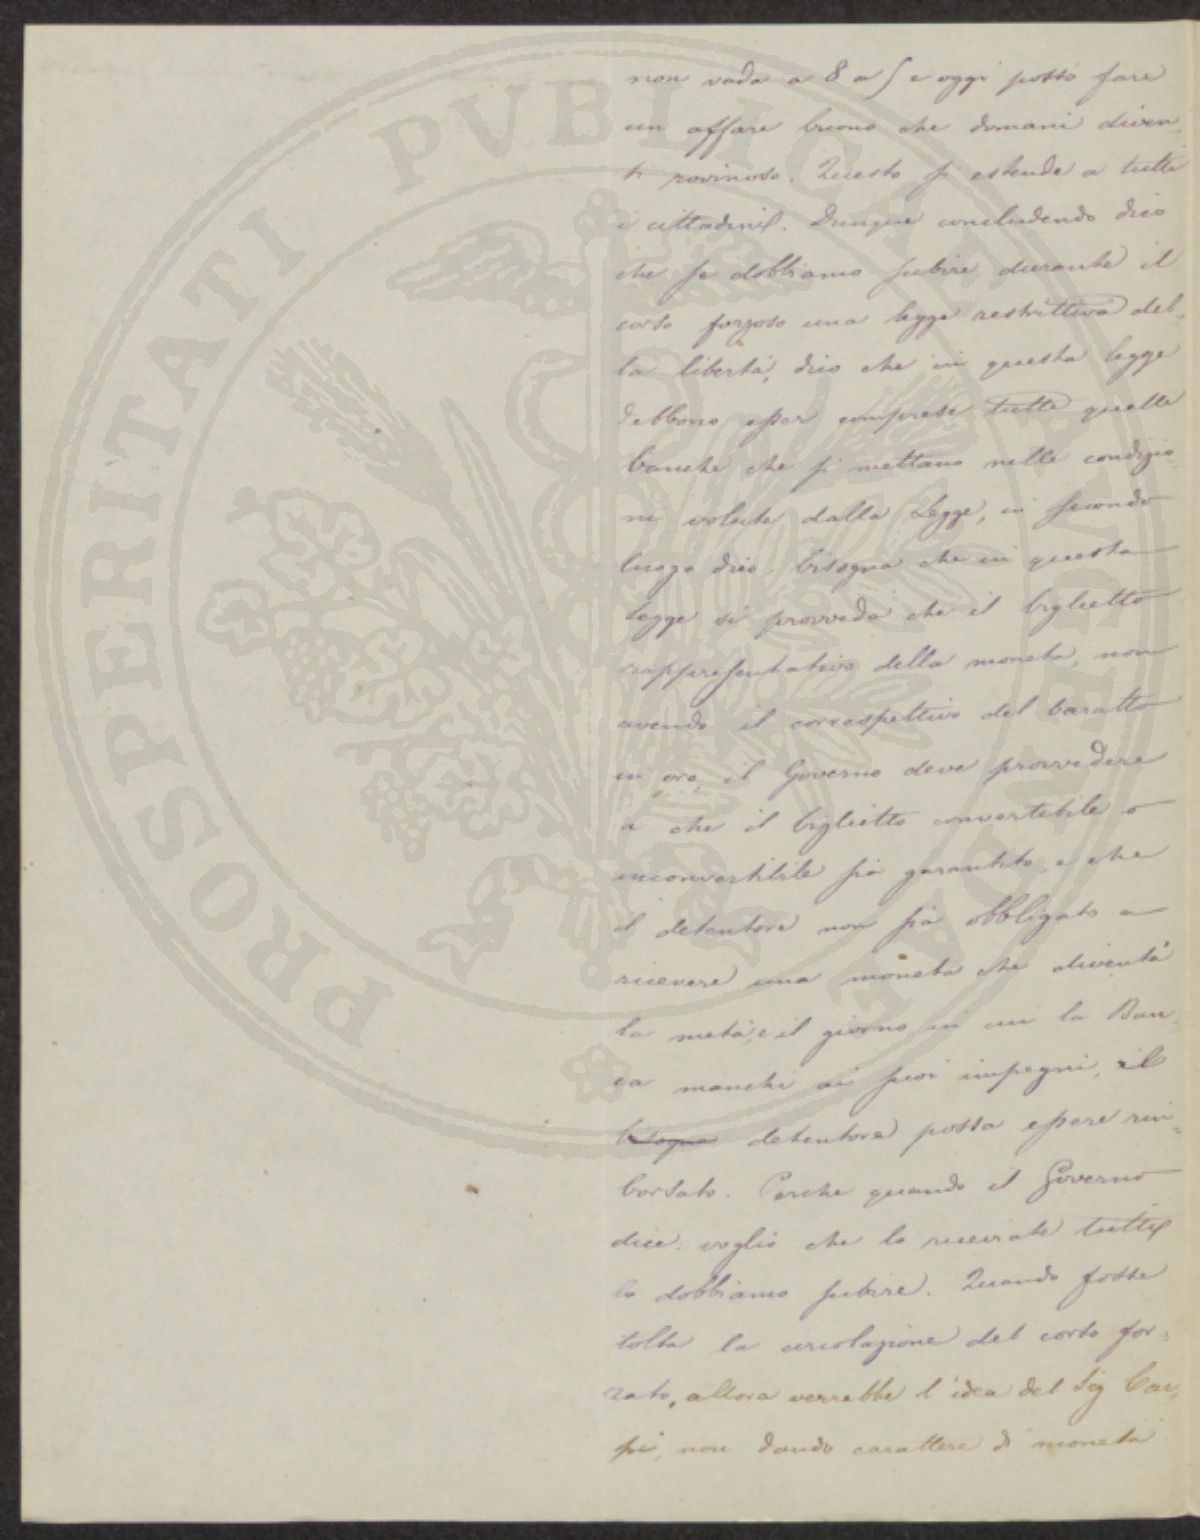 non vada a 8 a 5 e oggi posso fare
un affare buono che domani diven
ti rovinoso. Questo si estende a tutti
i cittadini. Dunque concludendo dico
che se dobbiamo subire durante il
corso forzoso una legge restrittiva del-
la libertà, dico che in questa legge
debbono esser comprese tutte quelle
banche che si mettano nelle condizio
ni volute dalla Legge, in secondo
luogo dico. bisogna che in questa
legge si provveda che il biglietto
rappresentativo della moneta, non
avendo il correspettivo del baratto
in oro, il Governo deve provvedere
a che il biglietto convertibile o
inconvertibile sia garantito, e che
il detentore non sia obbligato a
ricevere una moneta che diventa
la metà, e il giorno in cui la Ban
ca manchi ai suoi impegni, il
bisogna detentore possa essere rim-
borsato. Perche quando il Governo
dice: voglio che lo riceviate tutti
lo dobbiamo subire. Quando fosse
tolta la circolazione del corso for-
zato, allora verrebbe l'idea del Sig Car-
pi, non dando carattere di moneta
PROSPERITATI PVBLICAE